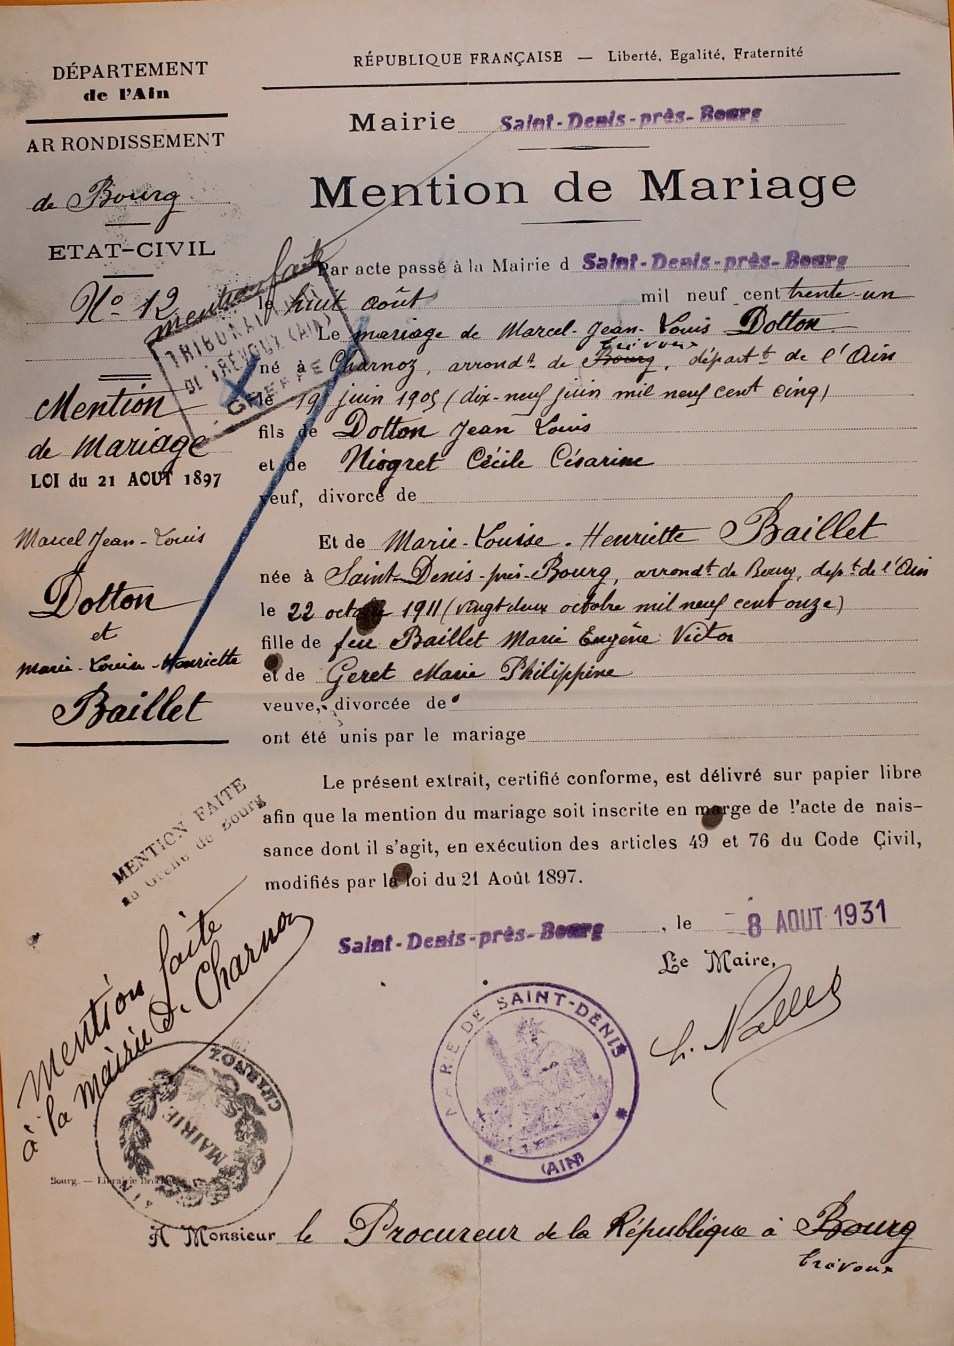 DÉPARTEMENT
de l'Ain
ARRONDISSEMENT
de Bourg
ETAT-CIVIL
No 12
Mention
de mariage
LOI du 21 AOUT 1897
Marcel Jean-Louis
Dotton
et
Marie-Louise-Henriette
Baillet
RÉPUBLIQUE FRANÇAISE — Liberté, Egalité, Fraternité
Mairie Saint-Denis-près-Bourg
Mention de Mariage
mention faite
TRIBUNAL
DE TRÉVOUX (AIN)
GREFFE
Par acte passé à la Mairie d Saint-Denis-près-Bourg
le huit août mil neuf cent trente-un
Le mariage de Marcel-Jean-Louis Dotton
trévoux
né à Charnoz, arrondt de Bourg, départt de l'Ain
le 19 juin 1905 (dix-neuf juin mil neuf cent cinq)
fils de Dotton Jean Louis
et de Niogret Cécile Césarine
veuf, divorcé de
Et de Marie-Louise-Henriette Baillet
née à Saint-Denis-près-Bourg, arrondt de Bourg, dépt de l'Ain
le 22 octobre 1911 (vingt deux octobre mil neuf cent onze)
fille de feu Baillet Marie Eugène Victor
et de Geret Marie Philippine
veuve, divorcée de
ont été unis par le mariage
Le présent extrait, certifié conforme, est délivré sur papier libre
afin que la mention du mariage soit inscrite en marge de l'acte de nais-
sance dont il s'agit, en exécution des articles 49 et 76 du Code Çivil,
modifiés par la loi du 21 Août 1897.
MENTION FAITE
au Greffe de Bourg
Saint-Denis-près-Bourg, le 8 AOUT 1931
Le Maire,
MAIRIE DE SAINT-DENIS
(AIN)
Mention faite
à la mairie de Charnoz
CHARNOZ
MAIRIE
AIN
Bourg. — Librairie
A Monsieur le Procureur de la République à Bourg
trévoux